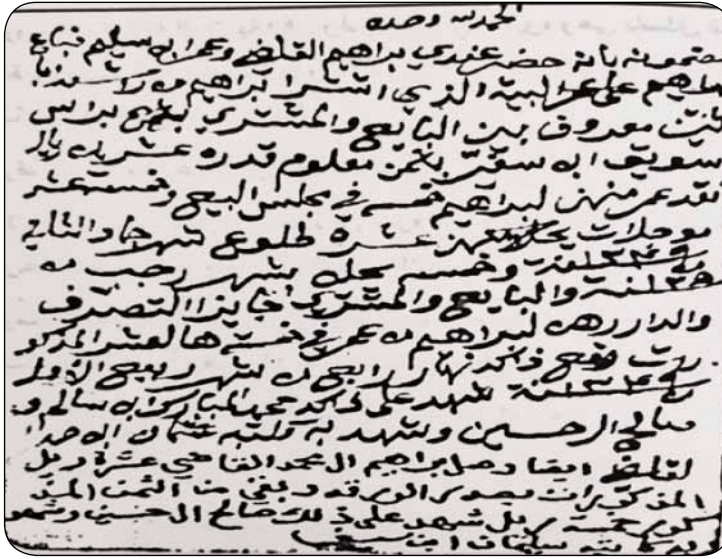 الحمد لله وحده
مضمونه بانه حضر عندي براهيم القاضي وعمر ابن سليم فباع
براهيم على عمر البيت الذي اشترا براهيم من راشد
بيت معروف بين البايع والمشتري براس
سويق ابن سقير بثمن معلوم قدره عشرين ريال
نقد عمر منهن لبراهيم خمسه في مجلس البيع وخمسة عشر
موجلات يحل منهن عشره طلوع شهر جماد الثاني
سنة ١٣٤٩ وخمسه يحلن شهر رجب من
سنة والبايع والمشتري جايزا التصرف
والدار رهن لبراهيم من عمر في خمسة هالعشر المذكو
رات وقع ذلك نهار رابع من شهر ربيع الاول
سنة ١٣٤٩ شهد على ذلك محمد المبارك ابن سالم و
صالح الحسين وشهد به كاتبه عثمان ابن
ايضا وصل براهيم ال محمد القاضي عشرة ريل
المذكورات بصدر الورقه وبقي من الثمن
خمسة ريل شهد على ذلك صالح ال حسين وشهد
به سليمان